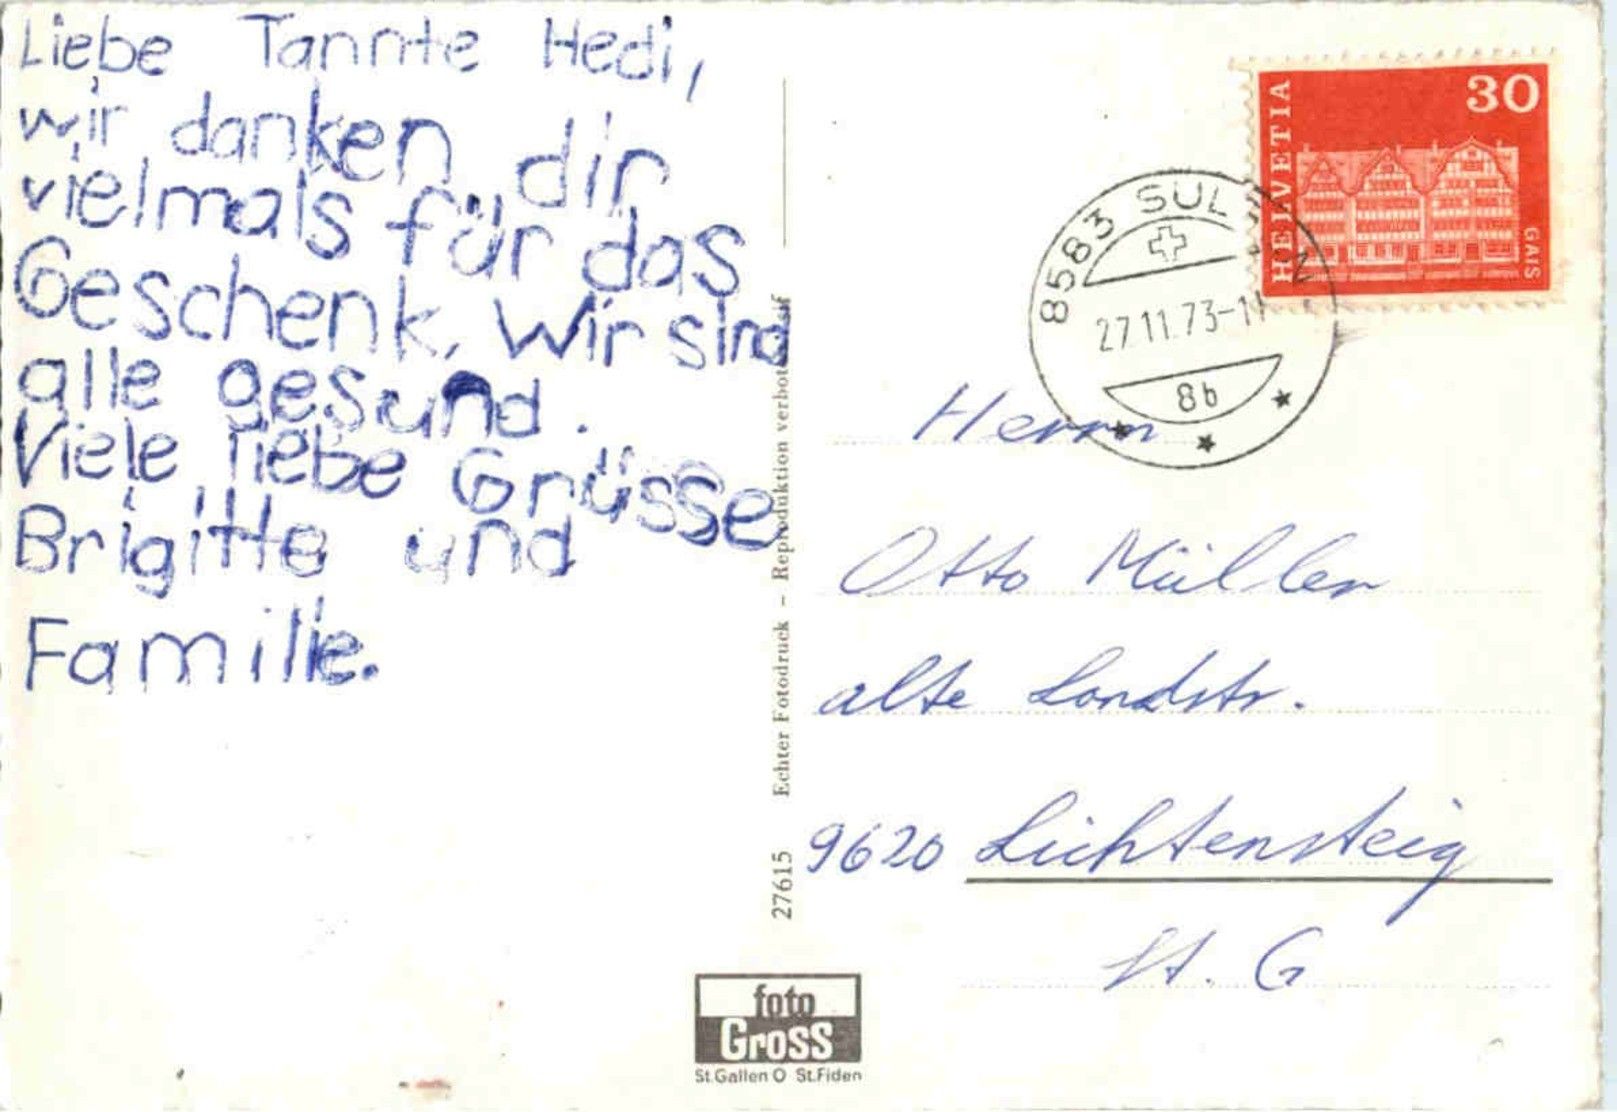 Liebe Tannte Hedi,
wir danken dir
vielmals für das
Geschenk, wir sind
alle gesund.
Viele liebe Grüsse
Brigitte und
Familie.
27615 Echter Fotodruck – Reproduktion verboten
foto
Gross
St.Gallen O St.Fiden
HELVETIA
30
GAIS
8583 SUL
27.11.73-1
8b
Herrn
Otto Müller
alte Landstr.
9620 Lichtensteig
St. G